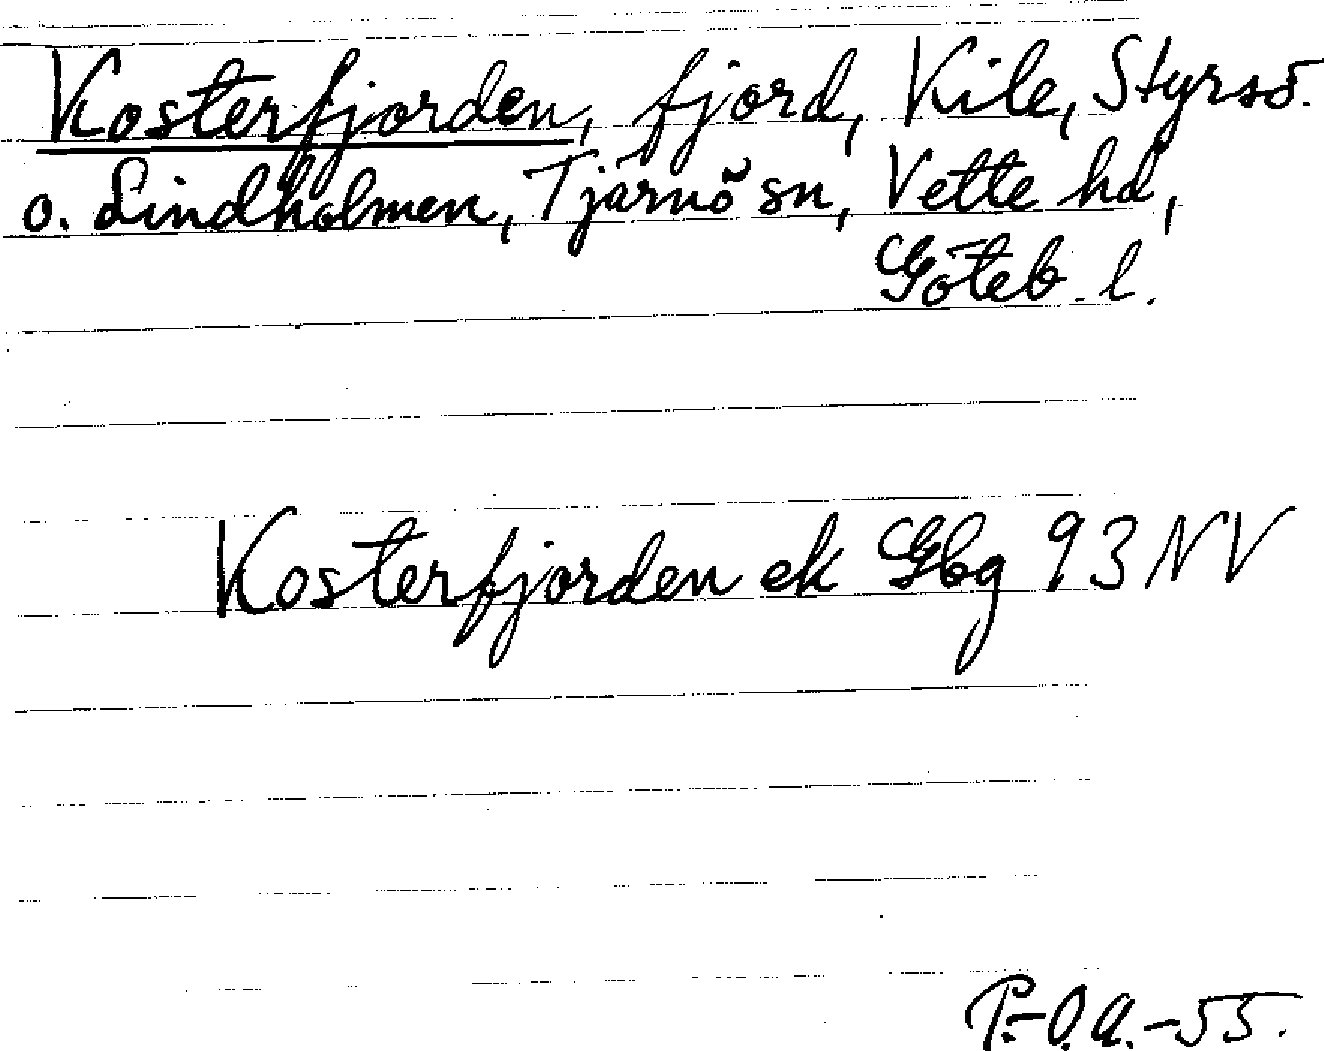 Kosterfjorden, fjord, Kile, Styrsö.
o. Lindholmen, Tjärnö sn, Vette hd,
Göteb. l.
Kosterfjorden ek Gbg 93 NV
P.-O.A.-55.